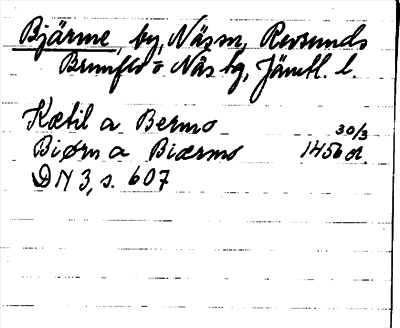 Bjärme, by, Näs sn, Revsunds
Brunflo o Näs tg, Jämtl. l.
Kætil a Bermo 30/3
Biørn a Biærmo 1450 or.
DN 3, s. 607